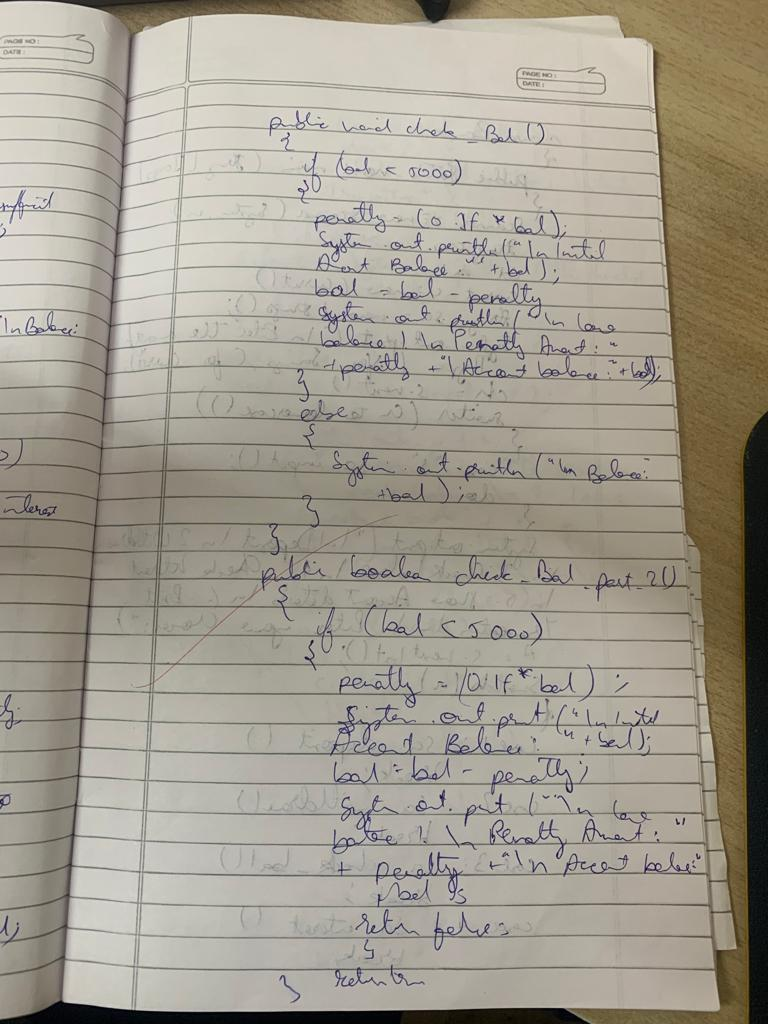 PAGE NO :
DATE :
PAGE NO :
DATE :
\n Balance:
interest
public void check_Bal ()
{
if (bal < 5000)
{
penatly = (0.1f * bal);
System.out.println("\n Intial
Account Balance: " + bal);
bal = bal - penatly
System.out.println("\n Low
balance! \n Penatly Amount : "
+penatly +"\ Account balance:"+bal);
}
else
{
System.out.println ("\n Balance:
+bal);
}
}
public boolean check_Bal_part_2()
{
if (bal < 5000)
{
penatly = (0.1f * bal) ;
System.out.print ("\n Intial
Account Balance: " + bal);
bal = bal - penatly;
System.out.print ("\n Low
! \n Penatly Amount : "
+ penatly +"\n Account balance:"
+bal
return false;
}
return
}